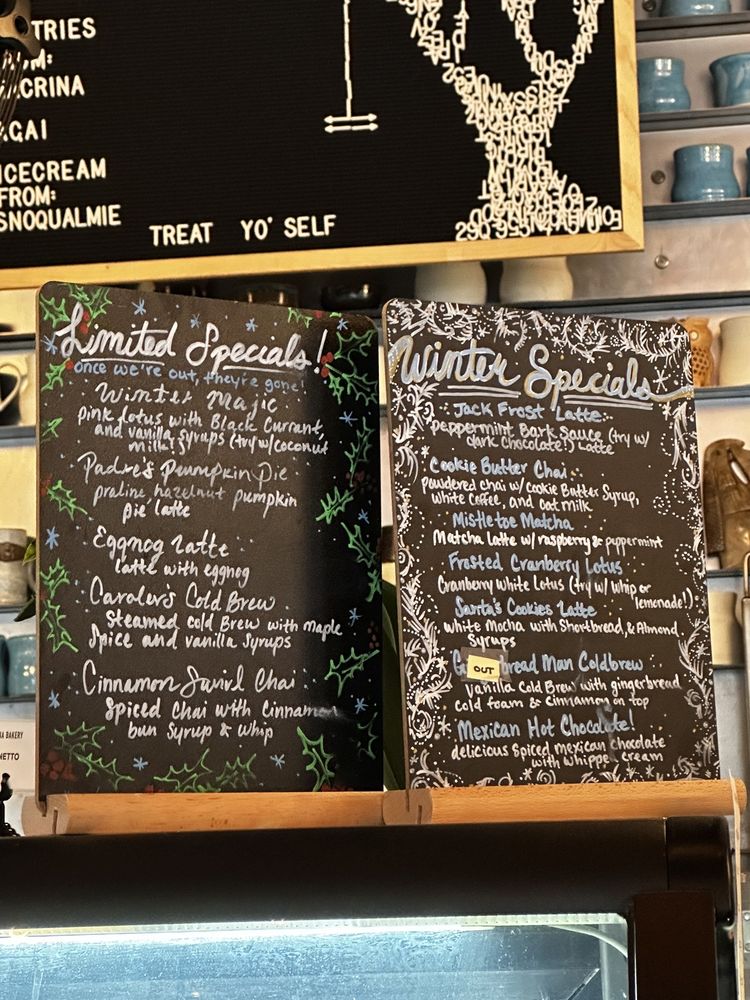 TRIES
CRINA
ICECREAM
FROM:
SNOQUALMIE
TREAT YO' SELF
Limited Specials!
once we're out, they're gone!
Winter Majic
pink lotus with Black Currant,
and vanilla syrups (try w/coconut
milk!)
Padre's Pumpkin Pie
praline, hazelnut pumpkin
pie latte
Eggnog Latte
latte with eggnog
Carolers Cold Brew
Steamed cold Brew with maple
Spice and vanilla syrups
Cinnamon Swirl Chai
Spiced Chai with Cinnamon
bun Syrup & whip
Winter Specials
Jack Frost Latte:
peppermint Bark Sauce (try w/
dark Chocolate!) Latte
Cookie Butter Chai:
powdered chai w/ cookie Butter Syrup,
white coffee, and oat milk
Mistletoe Matcha
Matcha Latte w/ raspberry & peppermint
Frosted Cranberry Lotus
Cranberry White Lotus (try w/ whip or
lemonade!)
Santa's Cookies Latte
White Mocha with Shortbread, & Almond
Syrups
OUT
bread Man Coldbrew
Vanilla Cold Brew with gingerbread
cold foam & Cinnamon on top
Mexican Hot Chocolate!
delicious Spiced mexican chocolate
with whipped cream
BAKERY
NETTO